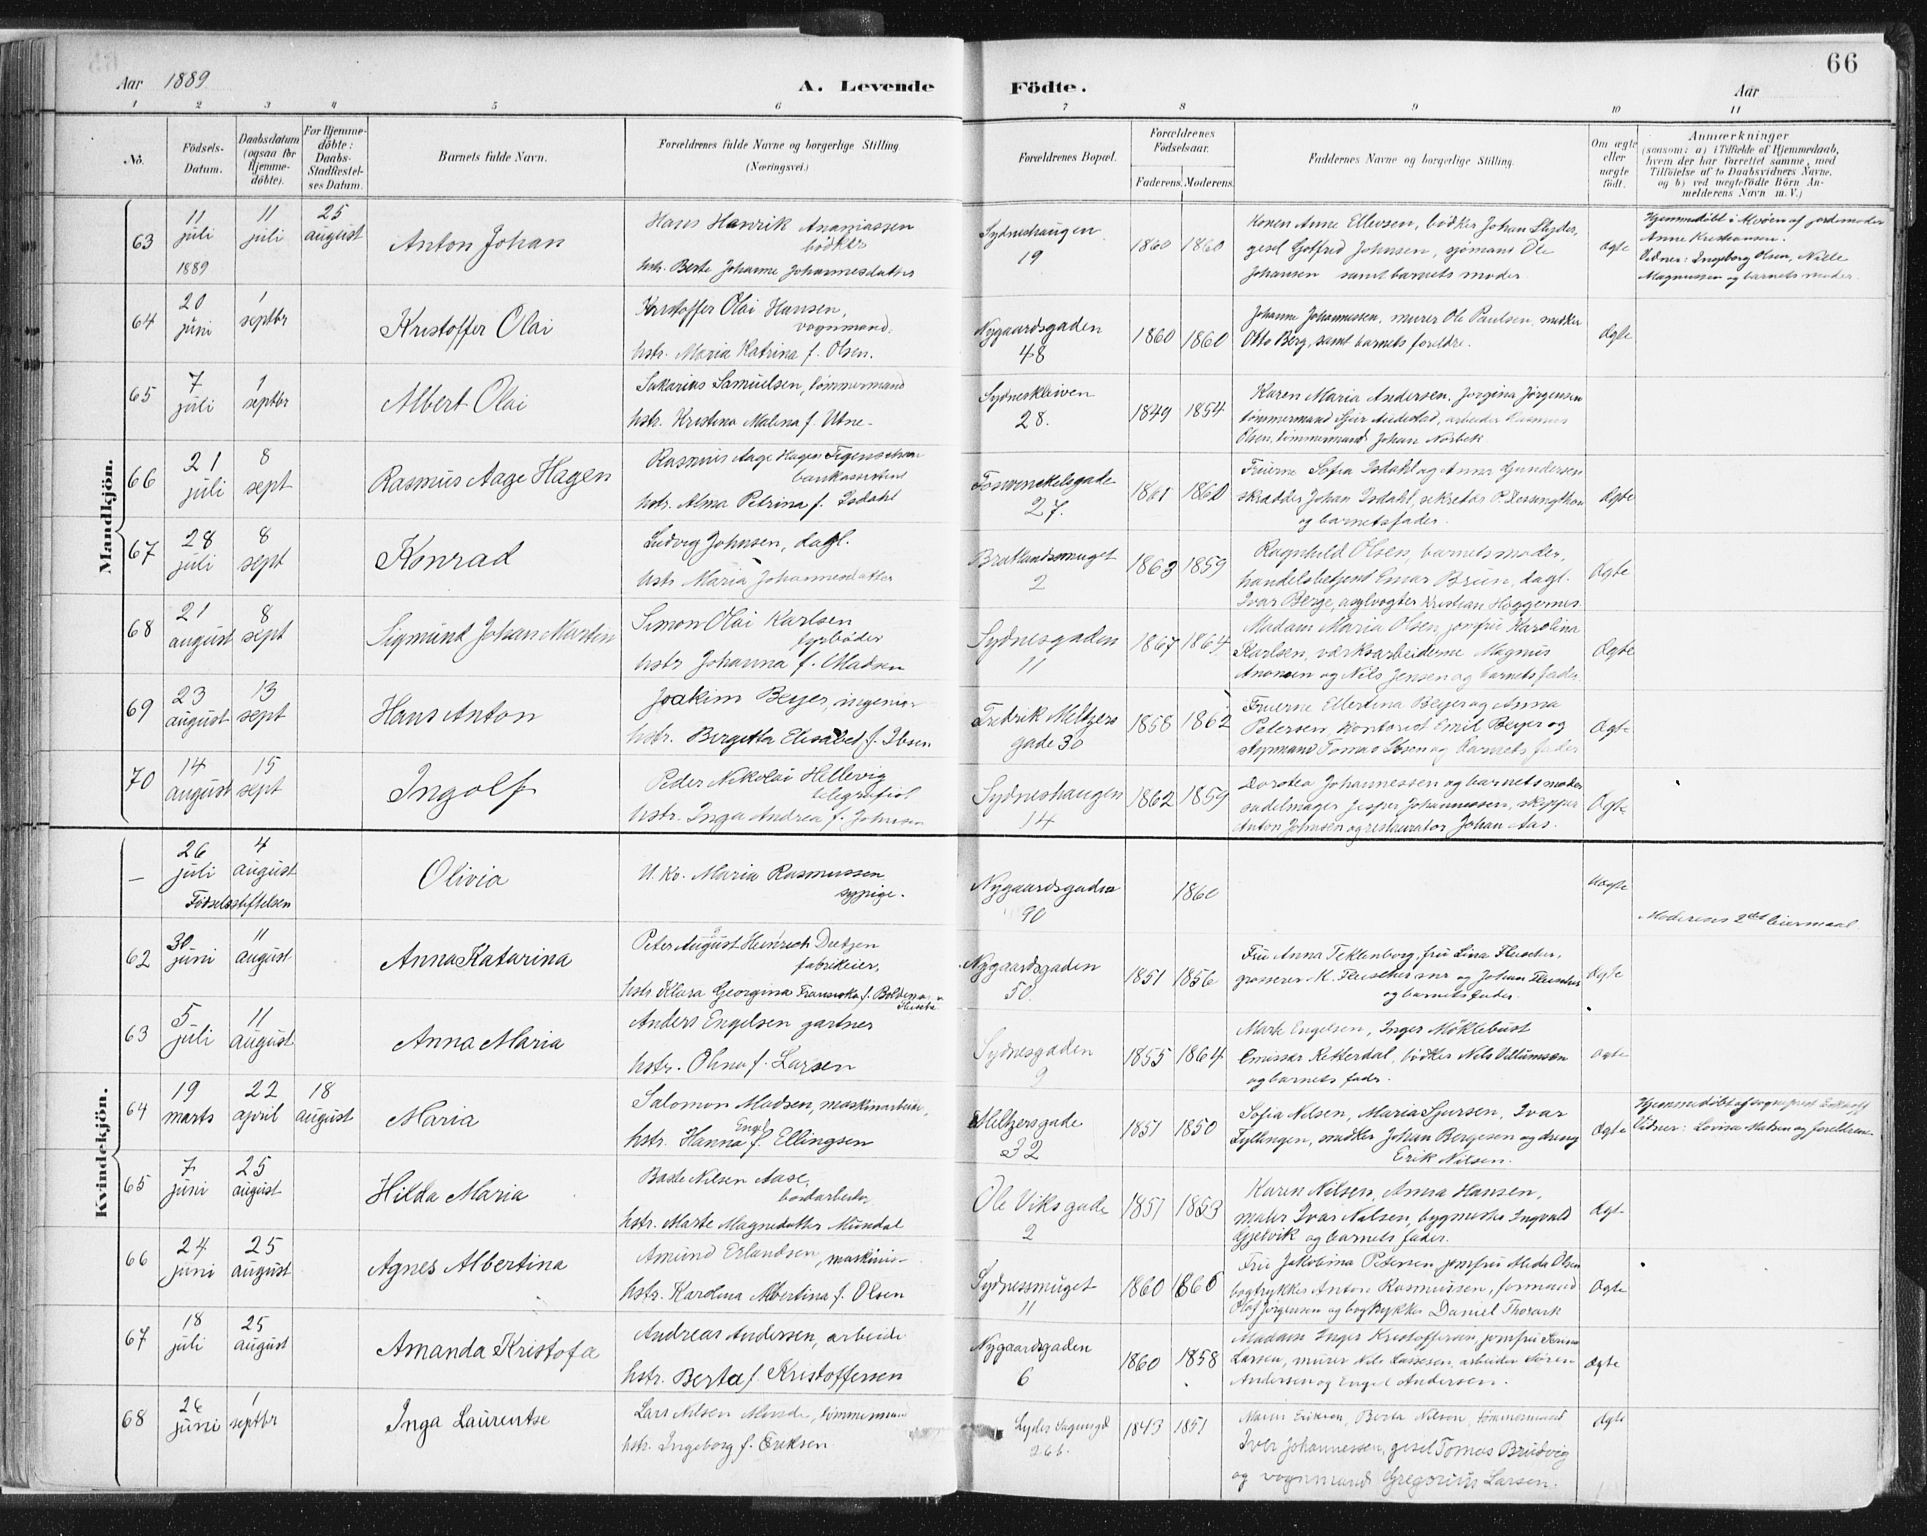 66
Aar 1889
A. Levende Födte.
Aar
1 2 3 4 5 6 7 8 9 10 11
No.
Födsels-Datum.
Daabsdatum (ogsaa for Hjemmedöbte).
For Hjemmedöbte: Daabs-Stadfestelses Datum.
Barnets fulde Navn.
Forældrenes fulde Navne og borgerlige Stilling
(Næringsvei.)
Forældrenes Bopæl.
Forældrenes Födselsaar.
Faderens. Moderens.
Faddernes Navne og borgerlige Stilling.
Om ægte eller uægte födt.
Anmærkninger
(saasom: a) i Tilfælde af Hjemmedaab,
hvem der har forrettet samme, med
Tilföielse af to Daabsvidners Navne,
og b) ved uægtefödte Börn An-
melderens Navn m. V.)
Mandkjön.
63 11 juli 1889 11 juli 25 august Anton Johan
Hans Henrik Ananiassen
bödker
hstr. Berte Johanne Johannesdatter
Sydneshaugen 19
1860 1860
Konen Anne Ellevsen, bödker Johan
gesel Gotfred Johnsen, sjömand Ole
Johansen samt barnets moder.
ægte
Hjemmedöbt af jordemoder
Anne Kristiansen.
Vidner: Ingeborg Olsen, Nille
Magnussen og barnets moder.
64 20 juni 1 septbr Kristoffer Olai
Kristoffer Olai Hansen,
vognmand.
hstr. Maria Katrina f. Olsen.
Nygaardsgaden 48
1860 1860
Johanne Johannessen, murer Ole Paulsen, snedker
Otto Berg, samt barnets foreldre.
Ægte
65 7 juli 1 septbr Albert Olai
Sakarias Samuelsen, tömmermand
hstr. Kristina Malena f. Utne.
Sydneskleiven 28.
1849 1854
Karen Maria Andersen, Jorgina Jörgensen
tömmermand Sjur Audestad, arbeider Rasmus
Olsen, tömmermand Johan Norbek
66 21 juli 8 sept Rasmus Aage Hagen
Rasmus Aage Hagen
bankassistent
hstr. Alma Petrina f. Isdahl
Foswinckelsgade 27.
1861 1860
Fruerne Sofia Isdahl og Anna Gundersen
skrædder Johan Isdahl, sekretær P.
og barnets fader.
Ægte
67 28 juli 8 sept Konrad
Ludvig Johnsen, dagl.
hstr Maria Johannesdatter
Bratlandssmuget 2
1863 1859
Ragnhild Olsen, barnets moder,
handelsbetjent Einar Bruun, dagl.
Ivar Berge, asylvogter Kristian Haggernes.
Ægte
68 21 august 8 sept Sigmund Johan Martin
Simon Olai Karlsen
fyrböder
hstr Johanna f. Madsen
Sydnesgaden 11
1867 1864
Madam Maria Olsen, jomfru Karolina
Karlsen, værksarbeiderne Magnus
og Nils Jensen og barnets fader.
Ægte
69 23 august 13 sept Hans Anton
Joakim Beyer, ingeniör
hstr. Birgetta Elisabet f. Ibsen
Fredrik Meltzers gade 30
1858 1862
Fruerne Ellertina Beyer og Anna
Petersen, kontorist Emil Beyer og
Tomas Ibsen og barnets fader
Ægte
70 14 august 15 sept Ingolf
Peder Nikolai Hellevig
telegrafist
hstr. Inga Andrea f. Johnsen
Sydneshaugen 14
1862 1859
Dorotea Johannessen og barnets moder
sadelmager Jesper Johannessen, skipper
Anton Johnsen og restauratör Johan Aas.
Ægte
Kvindekjön.
— 26 juli 4 august Födselsstiftelsen Olivia
U. Ko. Maria Rasmussen
sypige.
Nygaardsgaden 90
1860
Uægte
Moderens 2det leiermaal
62 30 juni 11 august Anna Katarina
Peter August Heinrich Dietzen
fabrikeier,
hstr Klara Georgina Fransiska f.
Nygaardsgaden 50.
1851 1856
Fru Anna Teklenborg, fru Lina Fleischer,
grosserer M. Fleischer snr og Johan Fleischer
og barnets fader.
Ægte
63 5 juli 11 august Anna Maria
Anders Engelsen gartner
hstr. Olina f. Larsen
Sydnesgaden 9
1855 1864
Engelsen, Inger Möklebust
Emissær Retterdal, bödker Nils Villumsen
og barnets fader.
Ægte
64 19 marts 22 april 18 august Maria
Salomon Madsen, maskinarbeider,
hstr. Hanna Engel f. Ellingsen
Meltzersgade 32
1851 1850
Sofia Nilsen, Maria Sjursen, Ivar
Fyllingen, snedker Johan Bergesen og dreng
Erik Nilsen.
Ægte
Hjemmedöbt af sogneprest
Vidner: Lovisa og foreldrene
65 7 juni 25 august Hilda Maria
Nilsen Aase,
bordarbeider
hstr. Marte Magnedatter Mundal
Ole Viksgade 2
1851 1853
Karen Nilsen, Anna Hansen,
maler Ivar Nilsen, bygmester Ingvald
Gjelvik og barnets fader.
Ægte
66 24 juni 25 august Agnes Albertina
Amund Erlandsen, maskinis-
hstr. Karolina Albertina f. Olsen
Sydnessmuget 11
1860 1860
Fru Jakobina Petersen jomfru Olsen
bogtrykker Anton Rasmussen, formand
Olaf Jörgensen og bogtrykker Daniel
Ægte
67 18 juli 25 august Amanda Kristofa
Andreas Andersen, arbeide
hstr. Berta f. Kristoffersen
Nygaardsgaden 6
1860 1858
Madam Inger Kristoffersen, jomfru
Larsen, murer Nils Lassesen, arbeider Sören
Andersen og Engel Andersen.
Ægte
68 26 juni 1 septbr Inga Laurentse
Lars Nilsen Minde, tömmermand
hstr. Ingeborg f. Eriksen
Lyder Sagensgd 26 b.
1843 1851
Eriksen, Berta Nilsen, tömmermand
Iver Johannessen, gesel Tomas Brudvig
og vognmand Gregorius Larsen.
Ægte